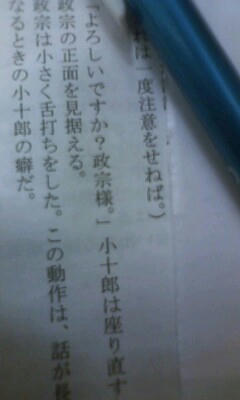 れは一度注意をせねば。）
「よろしいですか？政宗様。」小十郎は座り直す
政宗の正面を見据える。
政宗は小さく舌打ちをした。この動作は、話が長
なるときの小十郎の癖だ。